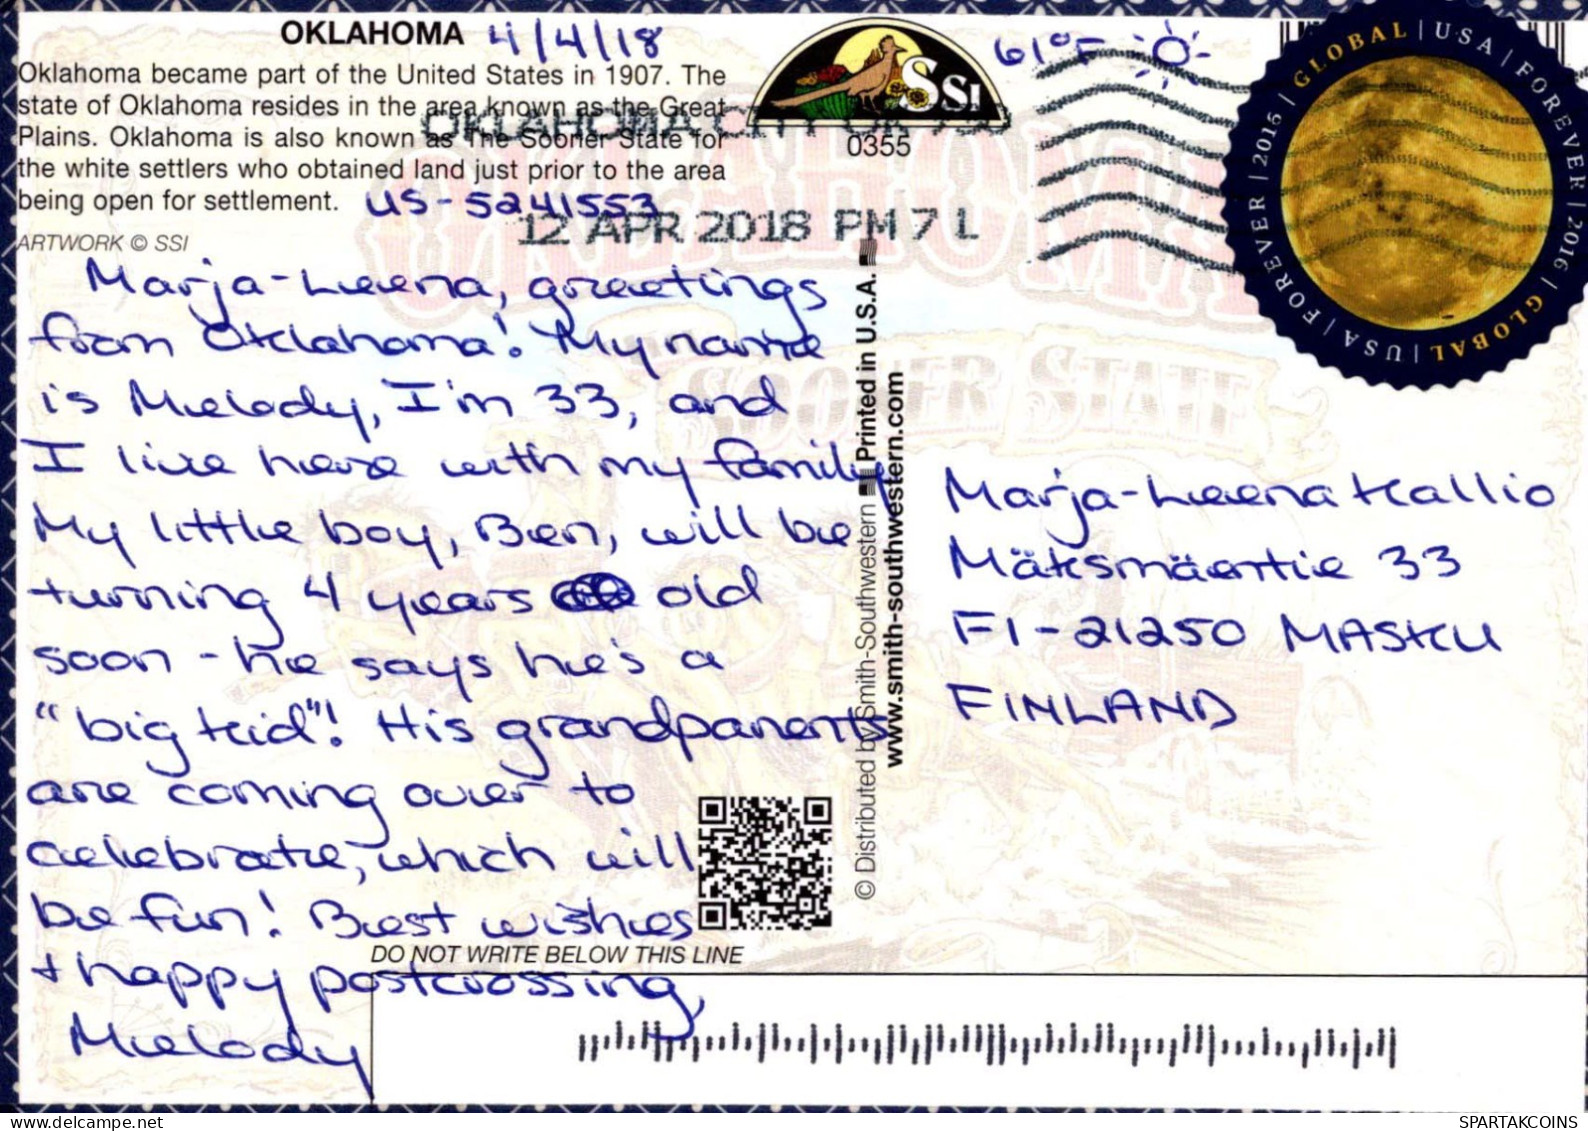 OKLAHOMA 4/4/18
61°F
Oklahoma became part of the United States in 1907. The
state of Oklahoma resides in the area known as the Great
Plains. Oklahoma is also known as The Sooner State for
the white settlers who obtained land just prior to the area
being open for settlement. US-5241553
ARTWORK © SSI
SSI
0355
OKLAHOMA CITY OK 730
12 APR 2018 PM 7 L
GLOBAL | USA | FOREVER | 2016 | GLOBAL | USA | FOREVER | 2016 |
OKLAHOMA
SOONER STATE
Marja-Leena, greetings
from Oklahoma! My name
is Melody, I'm 33, and
I live here with my family
My little boy, Ben, will be
turning 4 years old
soon - he says he's a
"big kid"! His grandparents
are coming over to
celebrate, which will
be fun! Best wishes
+ happy postcrossing,
Melody
DO NOT WRITE BELOW THIS LINE
© Distributed by Smith-Southwestern Printed in U.S.A.
www.smith-southwestern.com
Marja-Leena Kallio
Mäksmäentie 33
FI-21250 MASKU
FINLAND
delcampe.net
SPARTAKCOINS